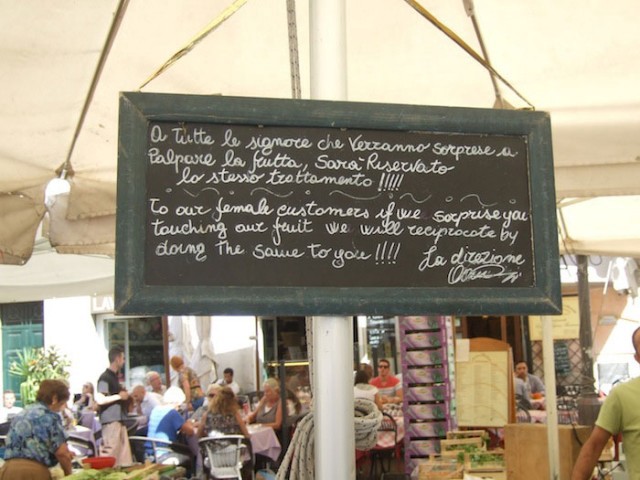 A tutte le signore che verranno sorprese a
Palpare la frutta, sarà Riservato
lo stesso trattamento !!!!
To our female customers if we sorprise you
touching our fruit we will reciprocate by
doing the same to you !!!!
La direzione